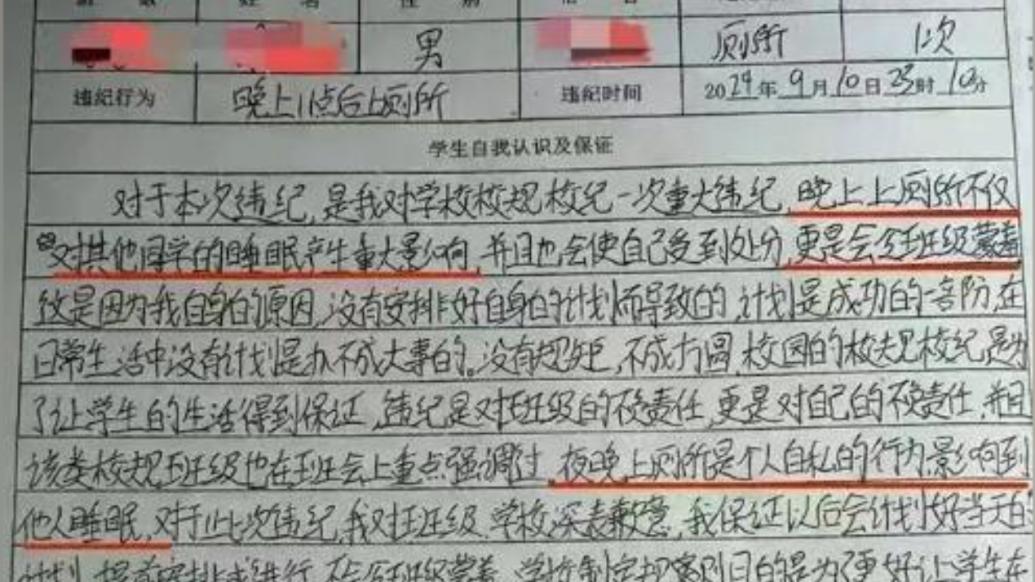 男 厕所 1次
违纪行为 晚上11点后上厕所 违纪时间 2024年9月10日23时10分
学生自我认识及保证
对于本次违纪,是我对学校校规校纪一次重大违纪,晚上上厕所不仅
对其他同学的睡眠产生重大影响,并且也会使自己受到处分,更是会令班级蒙羞
这是因为我自身的原因,没有安排好自身的计划而导致的,计划是成功的一部份,在
日常生活中没有计划是办不成大事的。没有规矩,不成方圆,校园的校规校纪是为
了让学生的生活得到保证,违纪是对班级的不负责任,更是对自己的不负责任,并且
该类校规班级也在班会上重点强调过,夜晚上厕所是个人自私的行为,影响到
他人睡眠,对于此次违纪,我对班级、学校深表歉意,我保证以后会计划好当天的
计划,提前安排或进行,不令班级蒙羞,学校制定规章则目的是为了更好让学生在